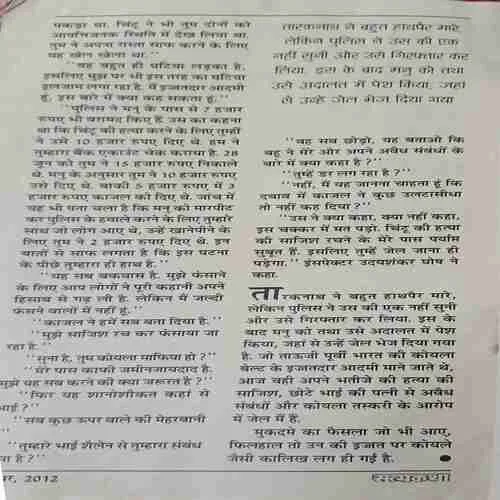 पकड़ा था. चिंटू ने भी तुम दोनों को
आपत्तिजनक स्थिति में देख लिया था.
तुम ने अपना रास्ता साफ करने के लिए
यह खेल खेला था.''
''वह बहुत ही घटिया लड़का है.
इसलिए मुझ पर भी इस तरह का घटिया
इलजाम लगा रहा है. मैं इज्जतदार आदमी
हूं, इस बारे में क्या कह सकता हूं.''
''पुलिस ने मनु के पास से 7 हजार
रुपए भी बरामद किए हैं. उस का कहना
था कि चिंटू की हत्या करने के लिए तुम्हीं
ने उसे 10 हजार रुपए दिए थे. हम ने
तुम्हारा बैंक एकाउंट चेक कराया है. 28
जून को तुम ने 15 हजार रुपए निकाले
थे. मनु के अनुसार तुम ने 10 हजार रुपए
उसे दिए थे. बाकी 5 हजार रुपए में 3
हजार रुपए काजल को दिए थे. जांच में
यह भी पता चला है कि मनु को मारपीट
कर पुलिस के हवाले करने के लिए तुम्हारे
साथ जो लोग आए थे, उन्हें खानेपीने के
लिए तुम ने 2 हजार रुपए दिए थे. इन
बातों से साफ लगता है कि इस घटना
के पीछे तुम्हारा ही हाथ है.''
''यह सब बकवास है. मुझे फंसाने
के लिए आप लोगों ने पूरी कहानी अपने
हिसाब से गढ़ ली है. लेकिन मैं जल्दी
फंसने वालों में नहीं हूं.''
''काजल ने हमें सब बता दिया है.''
''मुझे साजिश रच कर फंसाया जा
रहा है.''
''सुना है, तुम कोयला माफिया हो?''
''मेरे पास काफी जमीनजायदाद है.
मुझे यह सब करने की क्या जरूरत है?''
''फिर यह शानोशौकत कहां से
भाई?''
''सब कुछ ऊपर वाले की मेहरबानी
''तुम्हारे भाई शैलेन से तुम्हारा संबंध
या है?''
तारकनाथ ने बहुत हाथपैर मारे
लेकिन पुलिस ने उस की एक
नहीं सुनी और उसे गिरफ्तार कर
लिया. इस के बाद मनु को तथा
उसे अदालत में पेश किया, जहां
से उन्हें जेल भेज दिया गया
''वह सब छोड़ो. यह बताओ कि
बहू ने मेरे और अपने अवैध संबंधों के
बारे में क्या कहा है?''
''तुम्हें डर लग रहा है?''
''नहीं, मैं यह जानना चाहता हूं कि
दबाव में काजल ने कुछ उलटासीधा
तो नहीं कह दिया?''
''उस ने क्या कहा, क्या नहीं कहा,
इस चक्कर में मत पड़ो. चिंटू की हत्या
की साजिश रचने के मेरे पास पर्याप्त
सुबूत हैं. इसलिए तुम्हें जेल जाना ही
पड़ेगा.'' इंसपेक्टर उदयशंकर घोष ने
कहा.
तारकनाथ ने बहुत हाथपैर मारे,
लेकिन पुलिस ने उस की एक नहीं सुनी
और उसे गिरफ्तार कर लिया. इस के
बाद मनु को तथा उसे अदालत में पेश
किया, जहां से उन्हें जेल भेज दिया गया
है. जो ताऊजी पूर्वी भारत की कोयला
बेल्ट के इज्जतदार आदमी माने जाते थे,
आज वही अपने भतीजे की हत्या की
साजिश, छोटे भाई की पत्नी से अवैध
संबंधों और कोयला तस्करी के आरोप
में जेल में हैं.
मुकदमे का फैसला जो भी आए,
फिलहाल तो उन की इज्जत पर कोयले
जैसी कालिख लग ही गई है. ●
बर, 2012